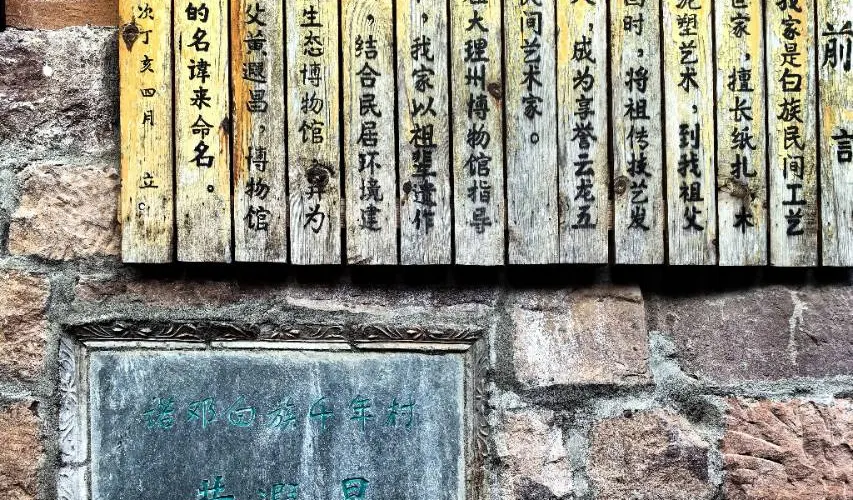 前言
我家是白族民间工艺
世家，擅长纸扎，木
泥塑艺术，到我祖父
时，将祖传技艺发
大，成为享誉云龙五
民间艺术家。
在大理州博物馆指导
，我家以祖辈遗作
，结合民居环境建
生态博物馆，并为
父黄遐昌，博物馆
的名讳来命名。
次丁亥四月 立。
诺邓白族千年村